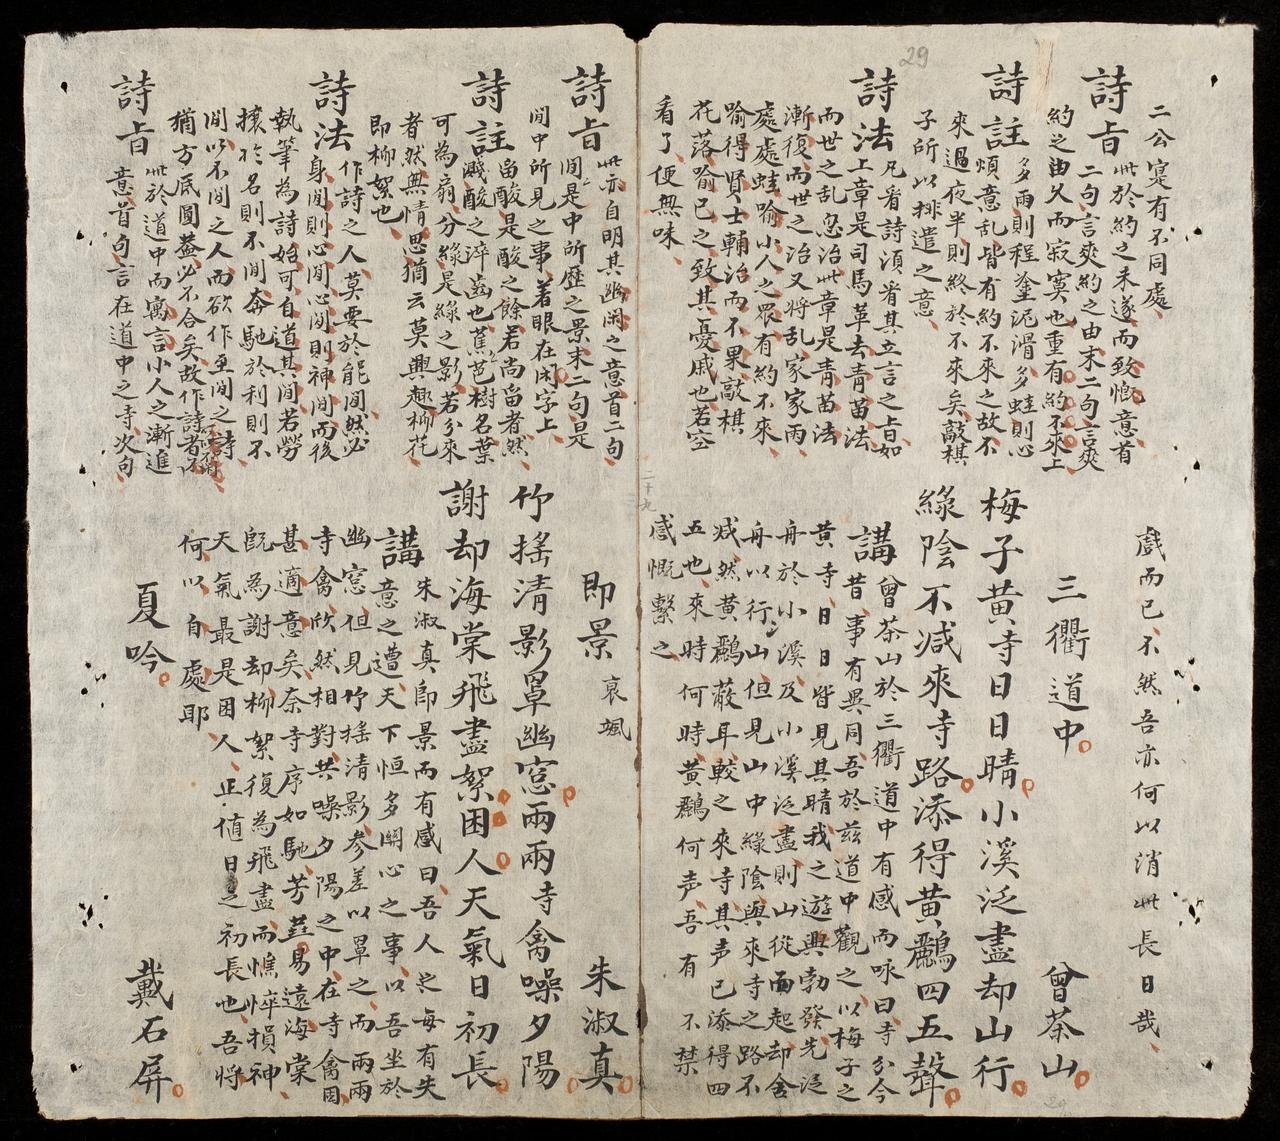 29
二公寔有不同處
詩旨 此於約之未遂而致慨意首
二句言爽約之由末二句言爽
約之由久而寂寞也重有約不來上
詩註 多雨則程塗泥滑多蛙則心
煩意乱皆有約不來之故不
來過夜半則終於不來矣敲棋
子所以排遣之意
詩法 凡看詩須看其立言之旨如
上章是司馬草去青苗法
而世之乱忽治此章是青苗法
漸復而世之治又將乱家家雨
處處蛙喻小人之眾有約不來
喻得賢士輔治而不果敲棋
花落喻已之致其憂戚也若空
看了便無味
戲而已不然吾亦何以消此長日哉
三衢道中 曾茶山
梅子黃寺日日晴小溪泛盡却山行
綠陰不減來寺路添得黃鸝四五聲
講 曾茶山於三衢道中有感而咏曰寺分今
昔事有異同吾於兹道中觀之以梅子之
黃寺日日皆見其晴我之遊興勃發先泛
舟於小溪及小溪泛盡則山從面起却舍
舟以行山但見山中綠陰與來寺之路不
減然黃鸝蔽耳較之來寺其声已添得四
五也來時何時黃鸝何声吾有不禁
感慨繫之
二十九
詩旨 此亦自明其幽閑之意首二句
閒是中所歷之景末二句是
閒中所見之事若眼在闲字上
詩註 畄酸是酸之餘若尚畄者然
濺酸之淬齒也蕉芭樹名葉
可為扇分綠是綠之影若分來
者然無情思猶云莫興趣柳花
即柳絮也
詩法 作詩之人莫要於能閒然必
身閒則心閒心閒則神閒而後
執筆為詩始可自道其閒若勞
攘於名則不閒奔馳於利則不
閒以不閒之人而欲作至閒之詩
猶方底圓蓋必不合矣故作詩者
詩旨 此於道中而寓言小人之漸進
意首句言在道中之寺次句
即景 哀颯 朱淑真
竹搖清影罩幽窓兩兩寺禽噪夕陽
謝却海棠飛盡絮困人天氣日初長
講 朱淑真即景而有感曰吾人之每有失
意之遭天下恒多關心之事以吾坐於
幽窓但見竹搖清影參差以罩之而兩兩
寺禽欣然相對共噪夕陽之中在寺禽固
甚適意矣奈寺序如馳芳莚易遠海棠
旣為謝却柳絮復為飛盡而憔悴損神
天氣最是困人正値日之初長也吾將
何以自處耶
夏吟 戴石屏